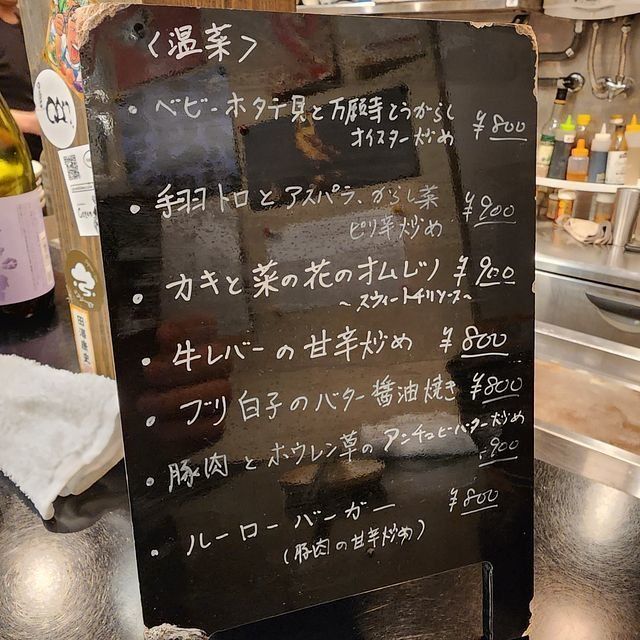 〈温菜〉
・ベビーホタテ貝と万願寺とうがらし ¥800
オイスター炒め
・手羽トロとアスパラ、からし菜 ¥900
ピリ辛炒め
・カキと菜の花のオムレツ ¥900
～スウィートチリソース～
・牛レバーの甘辛炒め ¥800
・ブリ白子のバター醤油焼き ¥800
・豚肉とホウレン草のアンチョビーバター炒め
¥900
・ルーローバーガー ¥800
(豚肉の甘辛炒め)